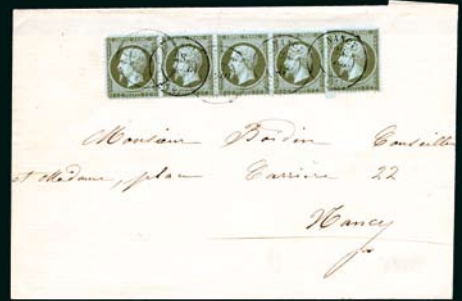 Monsieur Boidin Conseiller
et Madame, place Carrière 22
Nancy